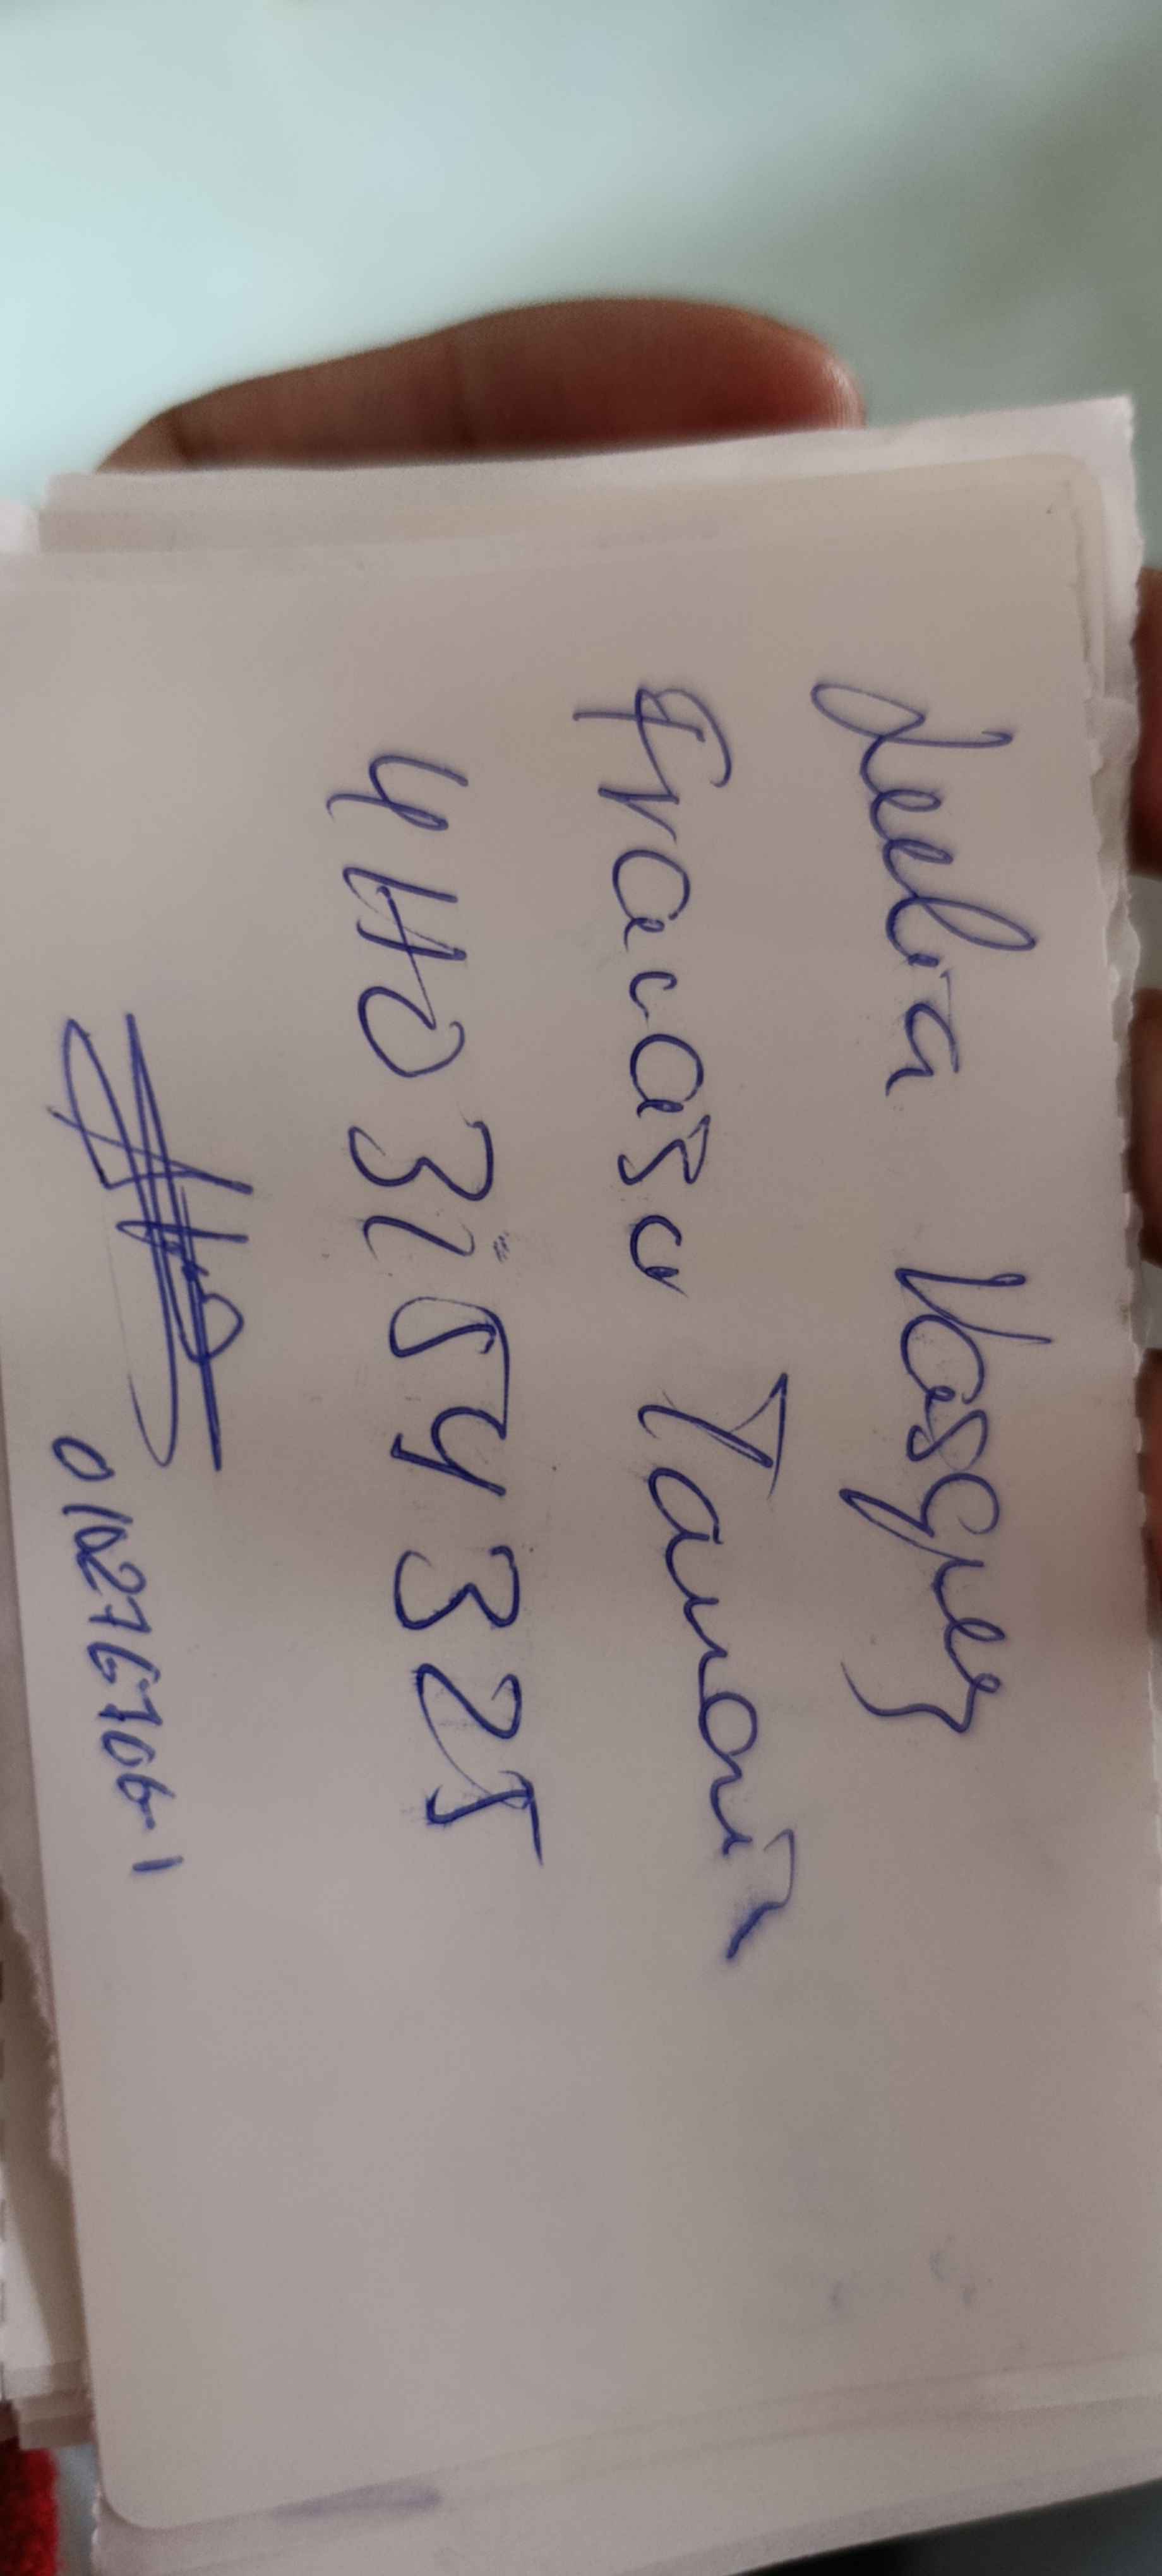 Leelia Vasquez
Fracaso Yamair
4403154325
010276706-1